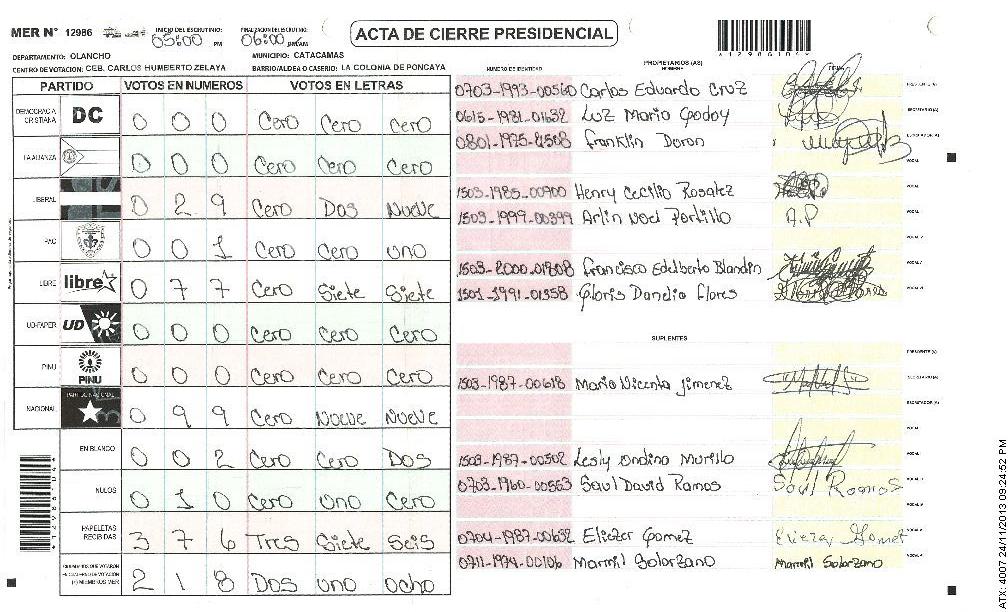 MER N° 12986 INICIO DEL ESCRUTINIO: 05:00 PM FINALIZACION DEL ESCRUTINIO: 06:00 PM/AM
ACTA DE CIERRE PRESIDENCIAL
DEPARTAMENTO: OLANCHO MUNICIPIO: CATACAMAS
CENTRO DE VOTACION: CEB. CARLOS HUMBERTO ZELAYA BARRIO/ALDEA O CASERIO: LA COLONIA DE PONCAYA
PARTIDO VOTOS EN NUMEROS VOTOS EN LETRAS
DEMOCRACIA CRISTIANA DC 0 0 0 Cero Cero Cero
LA ALIANZA 0 0 0 Cero Cero Cero
LIBERAL 0 2 9 Cero Dos Nueve
PAC 0 0 1 Cero Cero uno
LIBRE libre 0 7 7 Cero Siete Siete
UD-FAPER UD 0 0 0 Cero Cero Cero
PINU PINU 0 0 0 Cero Cero Cero
NACIONAL PARTIDO NACIONAL 0 9 9 Cero Nueve Nueve
EN BLANCO 0 0 2 Cero Cero Dos
NULOS 0 1 0 Cero uno Cero
PAPELETAS RECIBIDAS 3 7 6 Tres Siete Seis
2 1 8 Dos uno ocho
NUMERO DE IDENTIDAD PROPIETARIOS (AS) NOMBRE FIRMA
0703-1993-00560 Carlos Eduardo Cruz
0615-1981-01632 Luz Maria Godoy SECRETARIO (A)
0801-1975-21508 Franklin Doron ESCRUTADOR (A)
VOCAL
1503-1985-00900 Henry Cecilio Rosalez VOCAL
1503-1999-00399 Arlin Noel Portillo A.P
1503-2000-01808 Francisco Edelberto Blandin
1501-1991-01358 Gloris Dandia Flores
SUPLENTES
PRESIDENTE (A)
1503-1987-00618 Mario Vicente Jimenez SECRETARIO (A)
ESCRUTADOR (A)
1503-1987-00502 Lesly Ondina Murillo VOCAL
0703-1960-00563 Saul David Ramos Saul Ramos
0704-1987-00632 Eliezer Gomez Eliezer Gomez
0711-1974-00106 Marmil Solorzano Marmil Solorzano
ATX: 4007 24/11/2013 09:24:52 PM